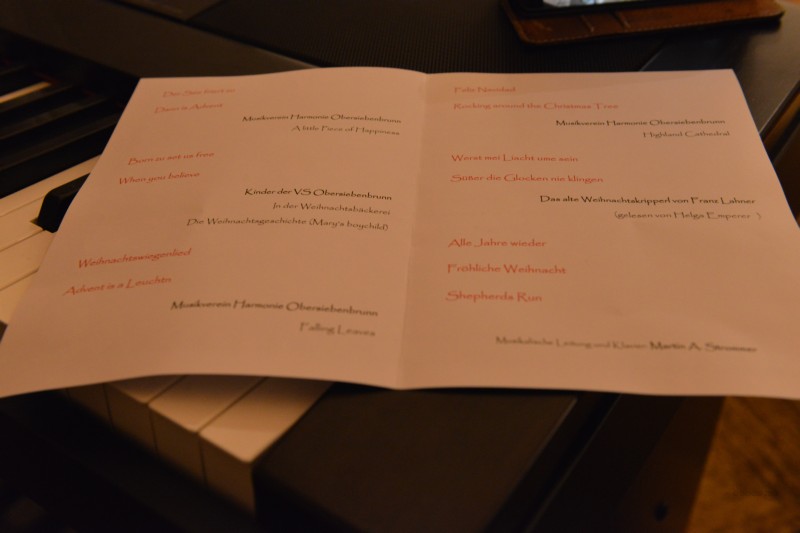 Der Sea
Dann is Advent
Musikverein Harmonie Obersiebenbrunn
A little Piece of Happyness
Born to set us free
When you believe
Kinder der VS Obersiebenbrunn
In der Weihnachtsbäckerei
Die Weihnachtsgeschichte (Mary's boychild)
Weihnachtswiegenlied
Advent is a Leuchtn
Musikverein Harmonie Obersiebenbrunn
Falling Leaves
Feliz Navidad
Rocking around the Christmas Tree
Musikverein Harmonie Obersiebenbrunn
Highland Cathedral
Werst mei Liacht ume sein
Süßer die Glocken nie klingen
Das alte Weihnachtskripperl von Franz Lahner
(gelesen von Helga Emperer )
Alle Jahre wieder
Fröhliche Weihnacht
Shepherds Run
Musikalische Leitung und Klavier Martin A.